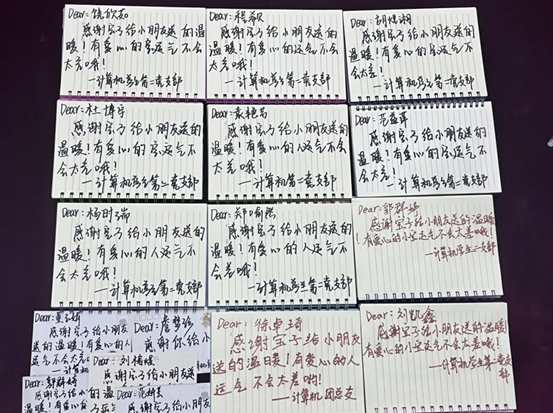 Dear:饶欣茹
感谢宝子给小朋友送的温
暖！有爱心的宝运气不会
太差哦！
—计算机学生第二党支部
Dear:程
感谢宝子给小朋友送的温
暖！有爱心的运气不会
太差哦！
—计算机学生第二党支部
Dear:胡
感谢宝子给小朋友送的温
暖！有爱心的宝运气不会
太差！
—计算机学生第二党支部
Dear:杜博宇
感谢宝子给小朋友送的
温暖！有爱心的宝运气不
会太差哦！
—计算机学生第二党支部
Dear:
感谢宝子给小朋友送的
温暖！有爱心的人运气不会
太差哦！
—计算机第二党支部
Dear:范
感谢宝子给小朋友送的
温暖！有爱心的宝运气不
会太差哦！
—计算机学生第二党支部
Dear:杨时瑞
感谢宝子给小朋友送的
温暖！有爱心的人运气不
会太差哦！
—计算机学生第二党支部
Dear:郑喻
感谢宝子给小朋友送的
温暖！有爱心的人运气不
会差哦！
—计算机学生第二党支部
Dear:郭
感谢宝子给小朋友送的温暖
！有爱心的小宝运气不会太差哦！
—计算机学生二支部
Dear:
感谢宝子给小朋友
送的温暖！有爱心的人
运气不会太差
—计算机
Dear:虞梦
感谢你给小
Dear:刘倩
感谢宝子给小朋友
Dear:郭
感谢宝子给小朋友
温暖！有爱心
Dear:范
感谢宝子给小朋友送
Dear:徐卓琦
感谢宝子给小朋友
送的温暖！有爱心的人
运气不会太差哟！
—计算机团总支
Dear:刘凯鑫
感谢宝子给小朋友送的温暖！
有爱心的小宝运气不会太差哦！
—计算机学生第二党支
部